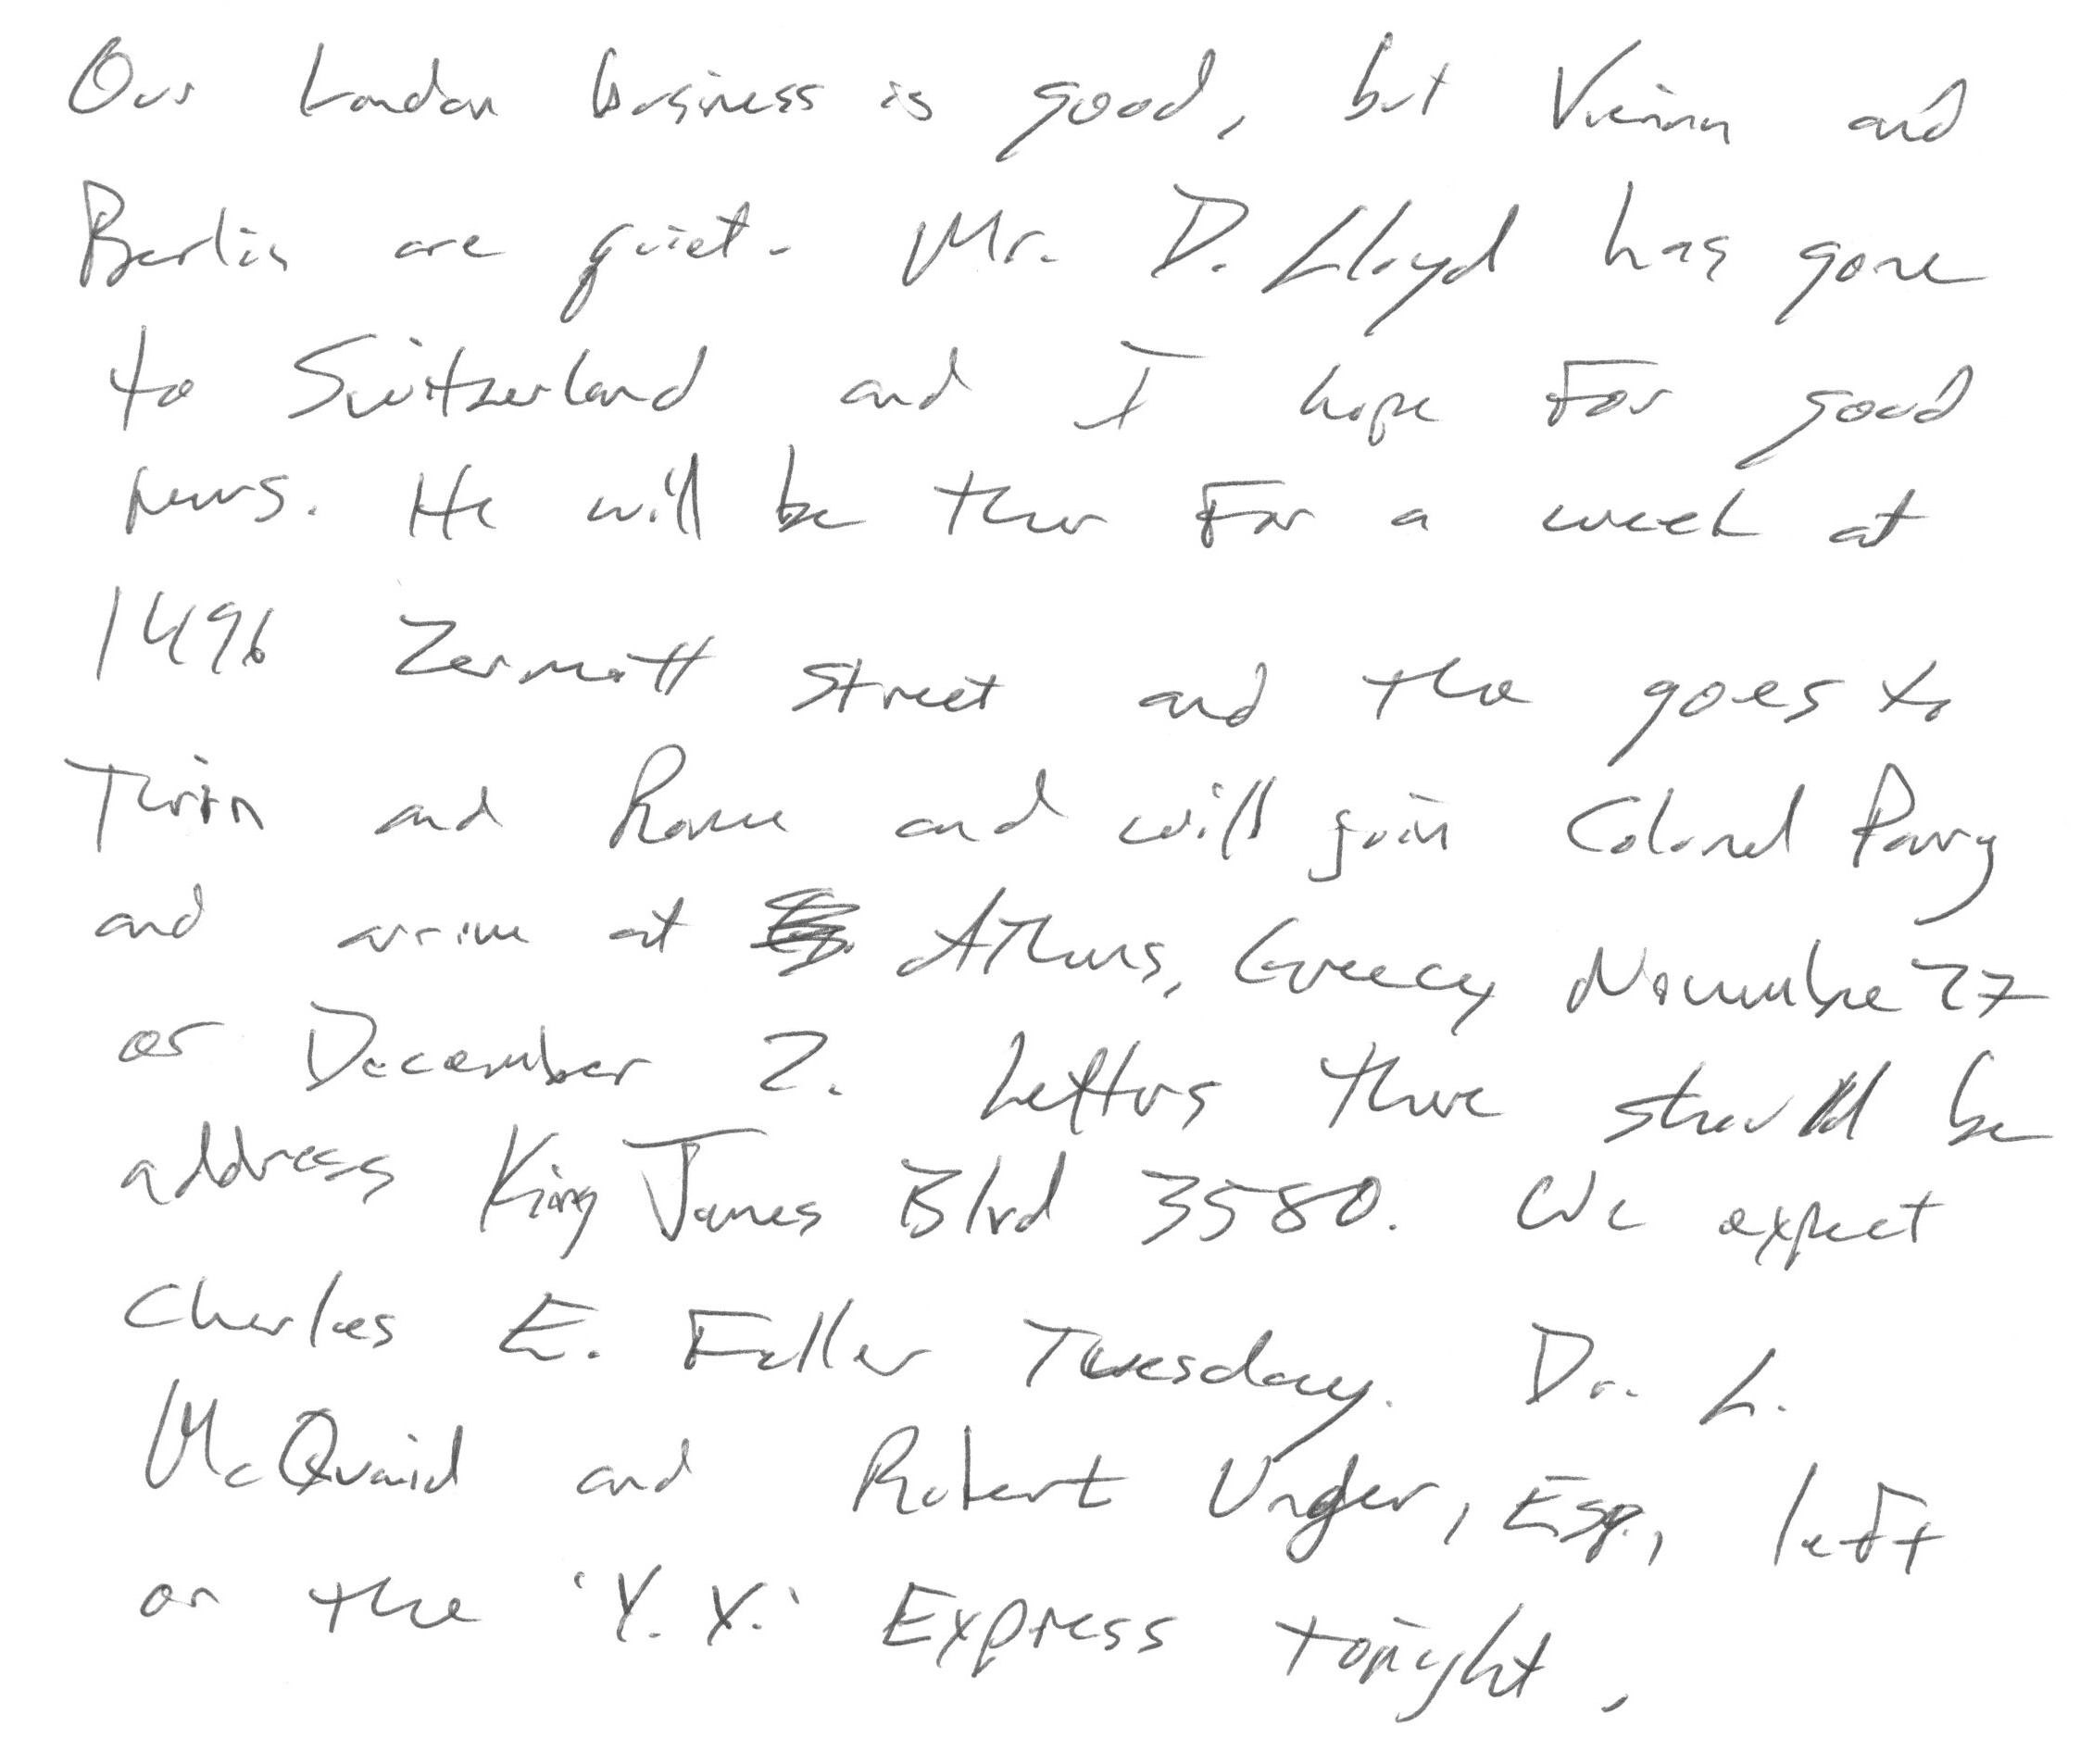 Our London business is good, but Vienna and
Berlin are quiet. Mr. D. Lloyd has gone
to Switzerland and I hope for good
news. He will be ther for a week at
1496 Zermott street and the goes to
Turin and Rome and will join Colonel Parry
and arrive at Athens, Greece, November 27
or December 2. Letters there should be
address King James Blvd 3580. We expect
Charles E. Fuller Tuesday. Dr. L.
McQuaid and Robert Unger, Esq., left
on the 'Y. X.' Express tonight.